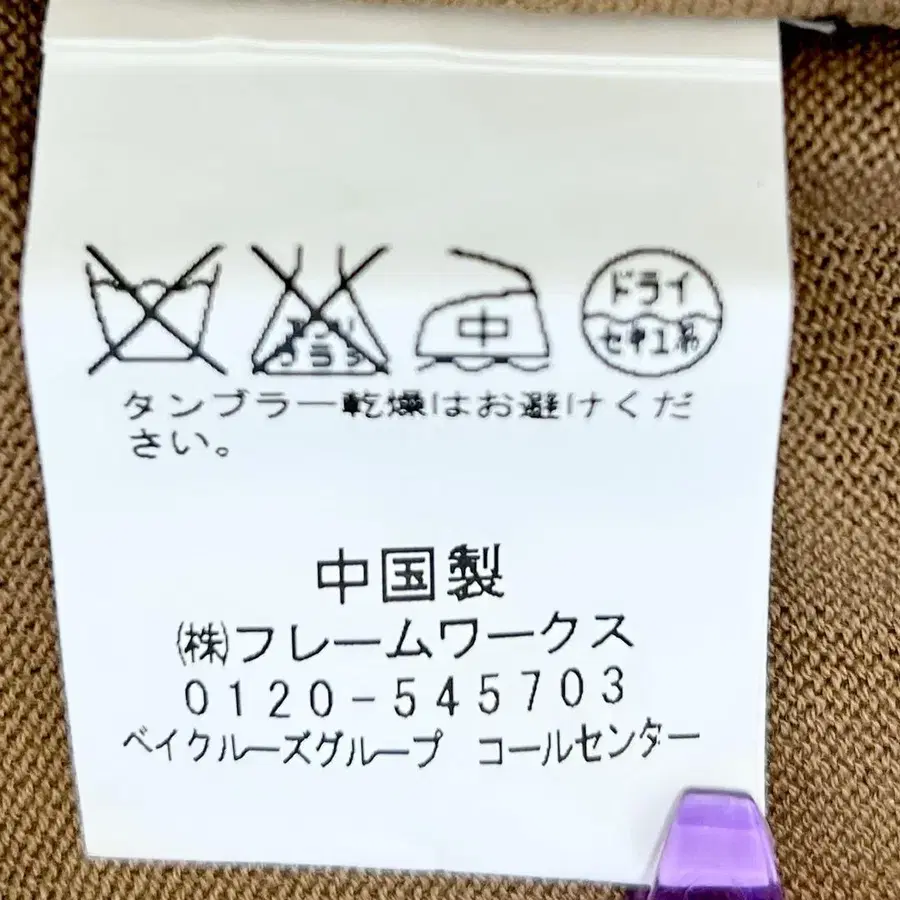 エンソ
サラシ
中
ドライ
セキユ系
タンブラー乾燥はお避けくだ
さい。
中国製
㈱フレームワークス
0120-545703
ベイクルーズグループ コールセンター